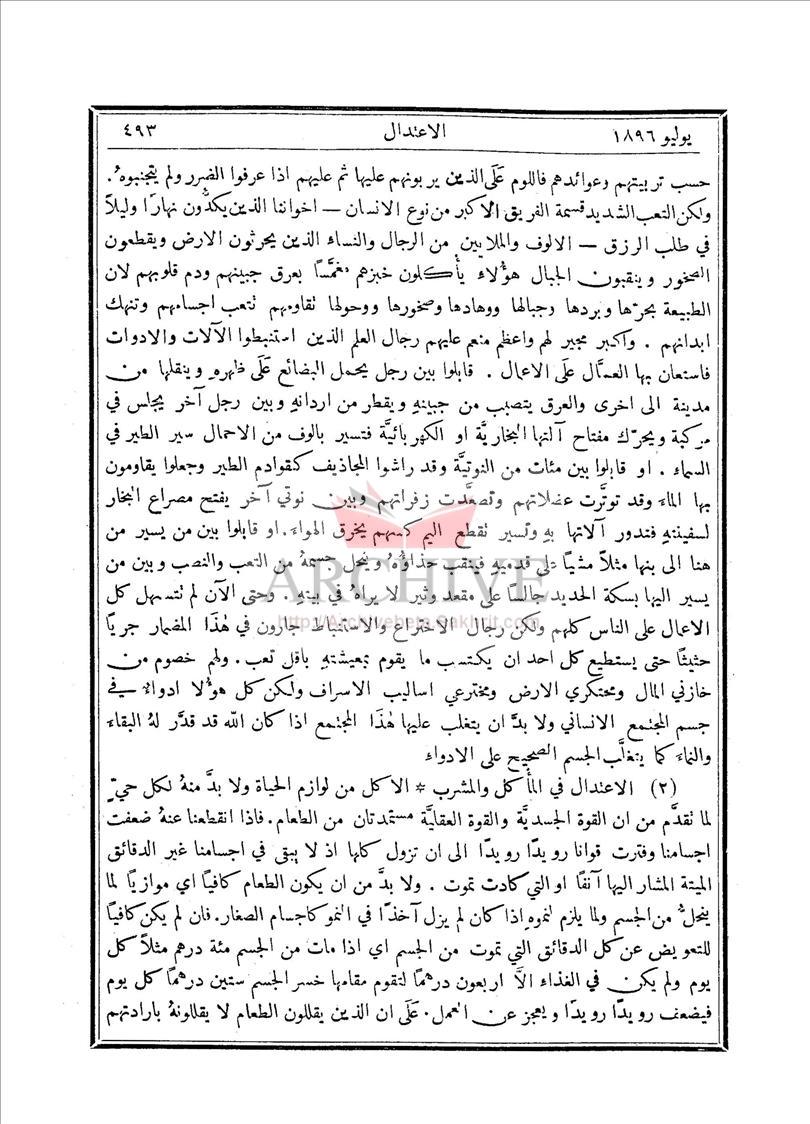 يوليو ١٨٩٦ الاعتدال ٤٩٣
حسب تربيتهم وعوائدهم فاللوم عَلَى الذين يربونهم عليها ثم عليهم اذا عرفوا الضرر ولم يتجنبوهُ .
ولكن التعب الشديد قسمة الفريق الاكبر من نوع الانسان – اخواننا الذين يكدُّون نهارًا وليلاً
في طلب الرزق – الالوف والملايين من الرجال والنساء الذين يحرثون الارض ويقطعون
الصخور وينقبون الجبال هؤلاء يأكلون خبزهم مغمَّسًا بعرق جبينهم ودم قلوبهم لان
الطبيعة بحرّها وبردها وجبالها ووهادها وصخورها ووحولها تقاومهم لتعب اجسامهم وتنهك
ابدانهم . واكبر مجير لهم واعظم منعم عليهم رجال العلم الذين استنبطوا الآلات والادوات
فاستعان بها العمَّال عَلَى الاعمال . قابلوا بين رجل يحمل البضائع عَلَى ظهرهِ وينقلها من
مدينة الى اخرى والعرق يتصبب من جبينهِ ويقطر من اردانهِ وبين رجل آخر يجلس في
مركبة ويحرّك مفتاح آلتها البخاريَّة او الكهربائيَّة فتسير بالوف من الاحمال سير الطير في
السماء . او قابلوا بين مئات من النوتيَّة وقد راشوا المجاذيف كقوادم الطير وجعلوا يقاومون
بها الماء وقد توتَّرت عضلاتهم وتصعَّدت زفراتهم وبين نوتي آخر يفتح مصراع البخار
لسفينتهِ فتدور آلاتها بهِ وتسير تقطع اليم كسهم يخرق الهواء . او قابلوا بين من يسير من
هنا الى بنها مثلاً مشيًا على قدميهِ فينقب حذاؤُهُ وينحل جسمهُ من التعب والنصب وبين من
يسير اليها بسكة الحديد جالسًا على مقعد وثير لا يراهُ في بيتهِ . وحتى الآن لم تتسهل كل
الاعمال على الناس كلهم ولكن رجال الاختراع والاستنباط جارون في هٰذا المضمار جريًا
حثيثًا حتى يستطيع كل احد ان يكتسب ما يقوم بمعيشتهِ باقل تعب . ولهم خصوم من
خازني المال ومحتكري الارض ومخترعي اساليب الاسراف ولكن كل هؤلا ادواء في
جسم المجتمع الانساني ولا بدَّ ان يتغلب عليها هٰذا المجتمع اذا كان الله قد قدَّر لهُ البقاء
والنماء كما يتغلَّب الجسم الصحيح على الادواء
(٢) الاعتدال في المأكل والمشرب * الاكل من لوازم الحياة ولا بدَّ منهُ لكل حيّ
لما تقدَّم من ان القوة الجسديَّة والقوة العقليَّة مستمدتان من الطعام . فاذا انقطعنا عنهُ ضعفت
اجسامنا وفترت قوانا رويدًا رويدًا الى ان تزول كلها اذ لا يبقى في اجسامنا غير الدقائق
الميتة المشار اليها آنفًا او التي كادت تموت . ولا بدَّ من ان يكون الطعام كافيًا اي موازيًا لما
ينحلُّ من الجسم ولما يلزم لنموهِ اذا كان لم يزل آخذًا في النمو كاجسام الصغار . فان لم يكن كافيًا
للتعويض عن كل الدقائق التي تموت من الجسم اي اذا مات من الجسم مئة درهم مثلاً كل
يوم ولم يكن في الغذاء الاَّ اربعون درهمًا لتقوم مقامها خسر الجسم ستين درهمًا كل يوم
فيضعف رويدًا رويدًا ويعجز عن العمل . عَلَى ان الذين يقللون الطعام لا يقللونهُ بارادتهم
ARCHIVE
http://Archivebeta.Sakhrit.com